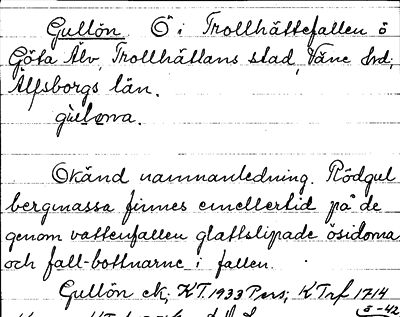 Gullön. Ö i Trollhättefallen ö
Göta Älv, Trollhättans stad, Väne hrd,
Älfsborgs län.
gulona.
Okänd namnanledning. Rödgul
bergmassa finnes emellertid på de
genom vattenfallen glattslipade ösidorna
och fall-bottnarne i fallen.
Gullön ek, KT.1933 Pers; KTrf 1714
5-42